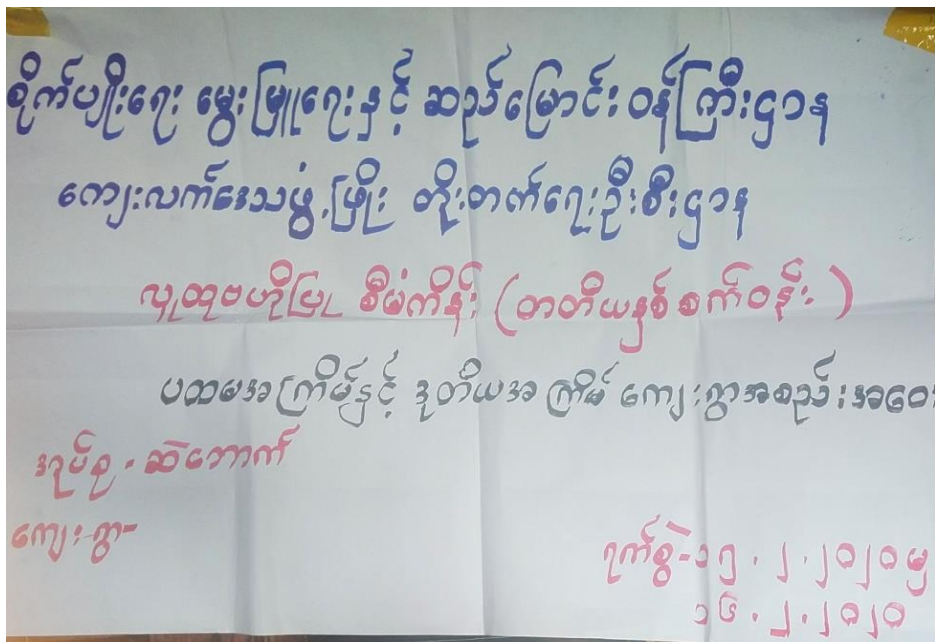 စိုက်ပျိုးရေး မွေးမြူရေးနှင့် ဆည်မြောင်းဝန်ကြီးဌာန
ကျေးလက်ဒေသဖွံ့ဖြိုး တိုးတက်ရေးဦးစီးဌာန
လူထုဗဟိုပြု စီမံကိန်း (တတိယနှစ်စက်ဝန်း)
ပထမအကြိမ်နှင့် ဒုတိယအကြိမ် ကျေးရွာအစည်းအဝေး
အုပ်စု - ဆဲဘောက်
ကျေးရွာ-
ရက်စွဲ-၁၅.၂.၂၀၂၀မှ
၁၆.၂.၂၀၂၀